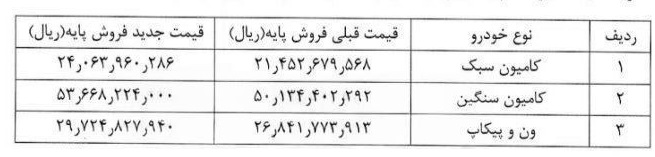 ردیف نوع خودرو قیمت قبلی فروش پایه(ریال) قیمت جدید فروش پایه(ریال)
۱ کامیون سبک ۲۱٫۴۵۲٫۶۷۹٫۵۶۸ ۲۴٫۰۶۳٫۹۶۰٫۲۸۶
۲ کامیون سنگین ۵۰٫۱۳۴٫۴۰۲٫۲۹۲ ۵۳٫۶۶۸٫۲۲۴٫۰۰۰
۳ ون و پیکاپ ۲۶٫۸۴۱٫۷۷۳٫۹۱۳ ۲۹٫۷۲۴٫۸۲۷٫۹۴۰